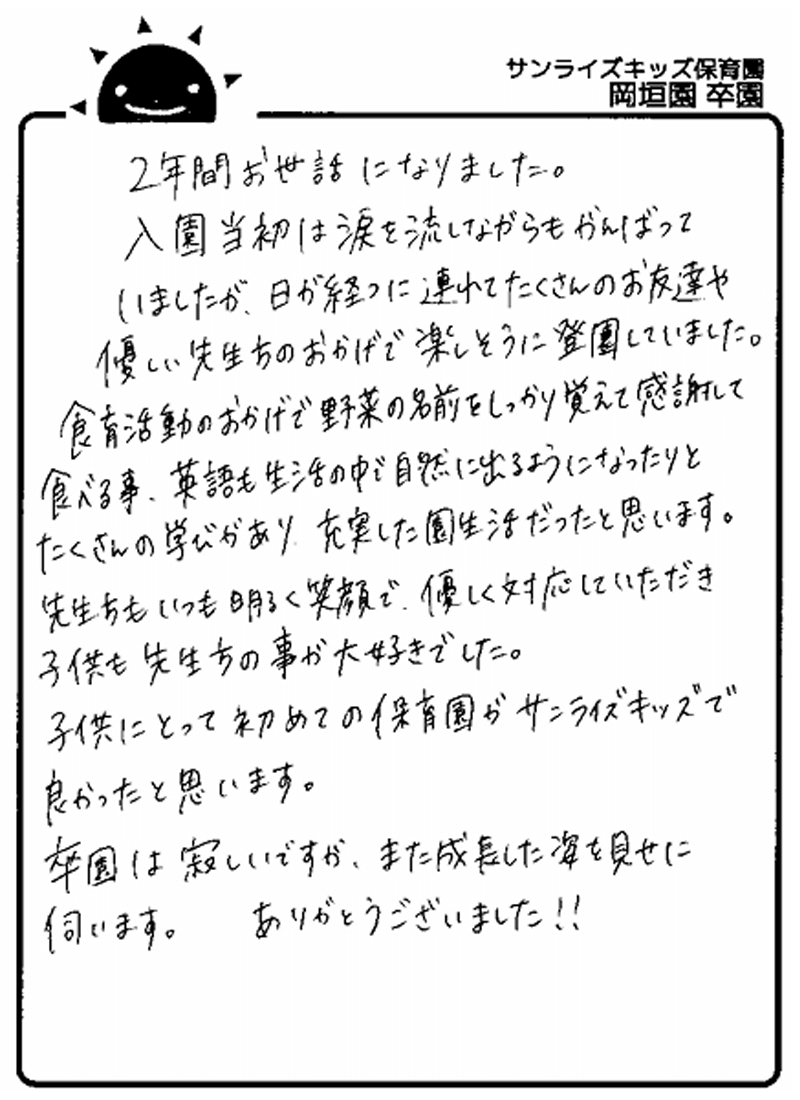 サンライズキッズ保育園
岡垣園 卒園
2年間お世話になりました。
入園当初は涙を流しながらもがんばって
いましたが、日が経つに連れてたくさんのお友達や
優しい先生方のおかげで楽しそうに登園していました。
食育活動のおかげで野菜の名前をしっかり覚えて感謝して
食べる事、英語も生活の中で自然に出るようになったりと
たくさんの学びがあり、充実した園生活だったと思います。
先生方もいつも明るく笑顔で、優しく対応していただき
子供も先生方の事が大好きでした。
子供にとって初めての保育園がサンライズキッズで
良かったと思います。
卒園は寂しいですが、また成長した姿を見せに
伺います。 ありがとうございました!!